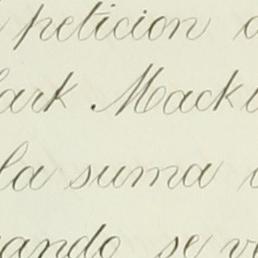 peticion
ark Mack
la suma
ando se ve